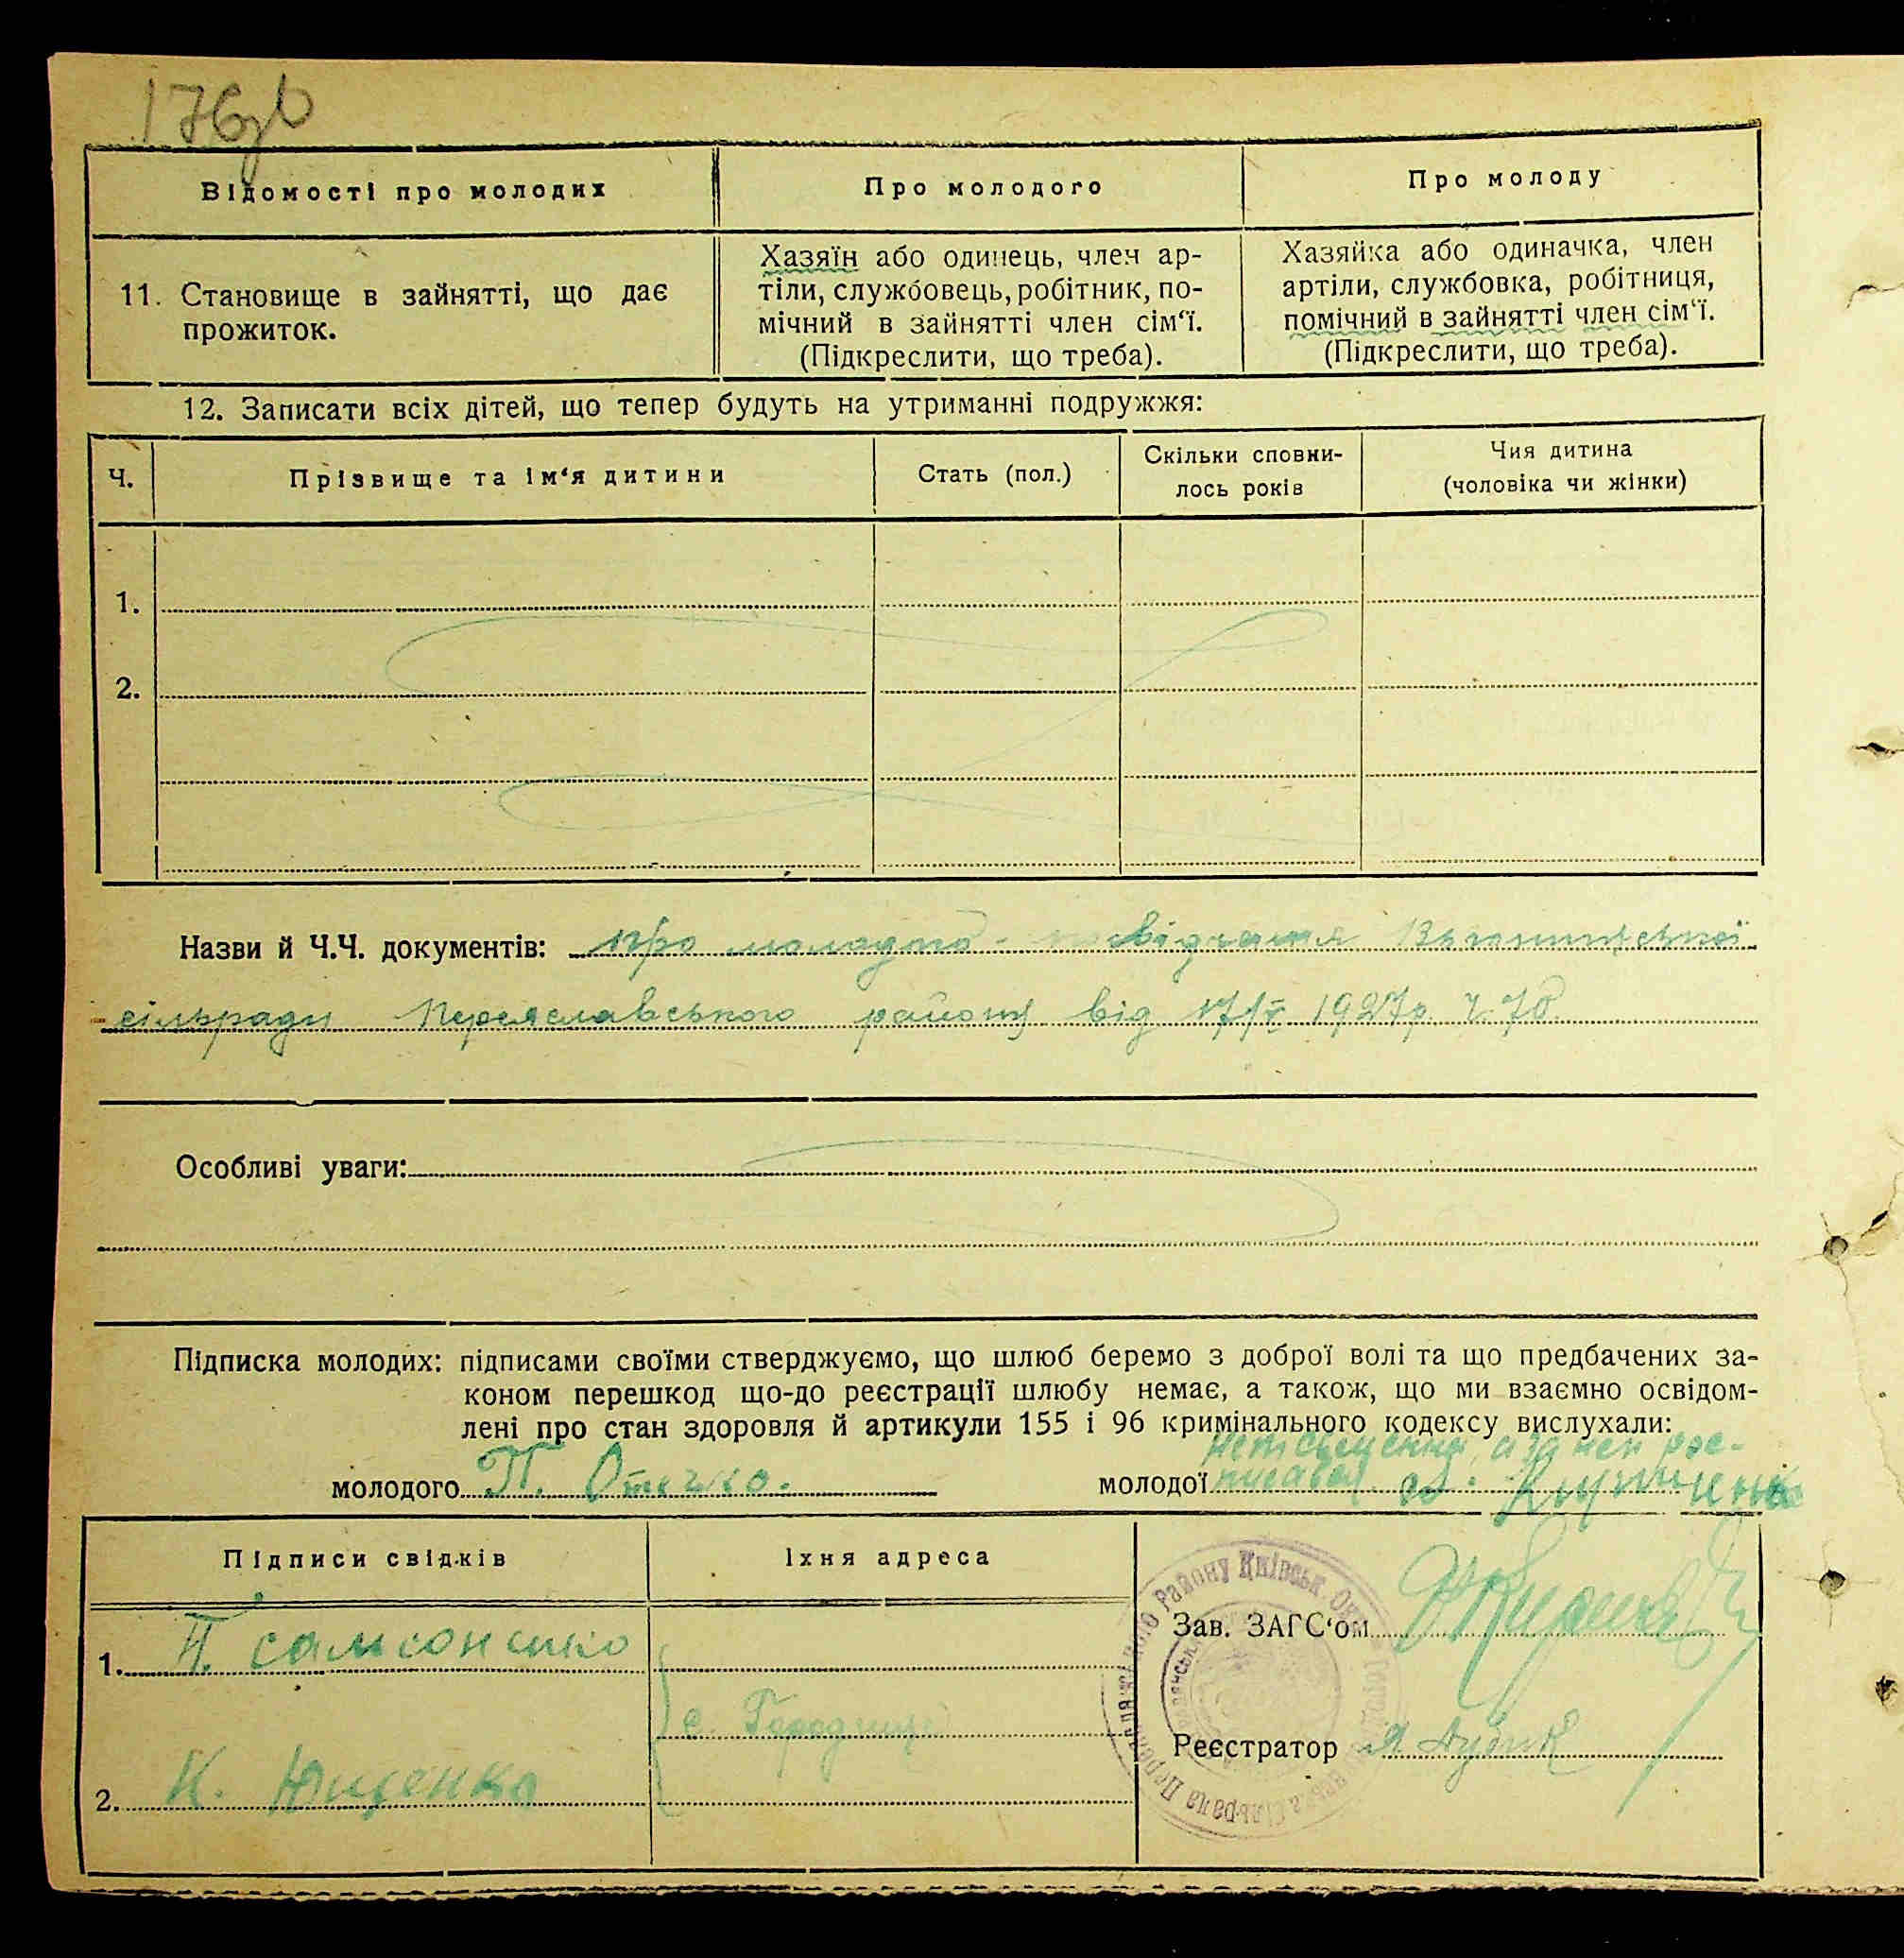 176зв
Відомості про молодих
Про молодого
Про молоду
11. Становище в зайнятті, що дає
прожиток.
Хазяїн або одинець, член ар-
тіли, службовець, робітник, по-
мічний в зайнятті член сім‘ї.
(Підкреслити, що треба).
Хазяйка або одиначка, член
артіли, службовка, робітниця,
помічний в зайнятті член сім‘ї.
(Підкреслити, що треба).
12. Записати всіх дітей, що тепер будуть на утриманні подружжя:
Ч.
Прізвище та ім‘я дитини
Стать (пол.)
Скільки сповни-
лось років
Чия дитина
(чоловіка чи жінки)
1.
2.
Назви й Ч.Ч. документів: про молодого - посвідчення
сільради Переяславського району від 1927р. ч. 70
Особливі уваги:
Підписка молодих: підписами своїми стверджуємо, що шлюб беремо з доброї волі та що предбачених за-
коном перешкод що-до реєстрації шлюбу немає, а також, що ми взаємно освідом-
лені про стан здоровля й артикули 155 і 96 кримінального кодексу вислухали:
неписьменна, а за неї рос-
молодого П. Отечко.
молодої писався
Підписи свідків
Їхня адреса
1. П. Самсоненко
с. Городище
2. К. Ющенко
Зав. ЗАГС‘ом
Реєстратор
Району Київськ. Окр.